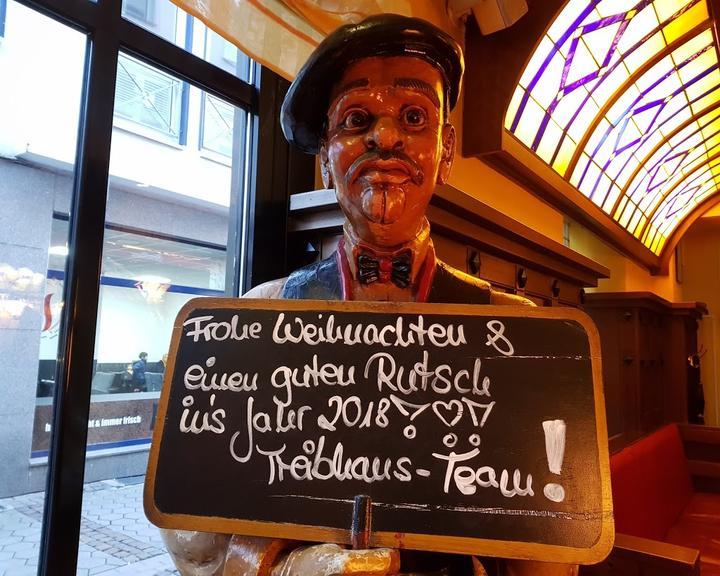 Frohe Weihnachten &
einen guten Rutsch
ins Jahr 2018!♡!
Treibhaus-Team!
& immer frisch